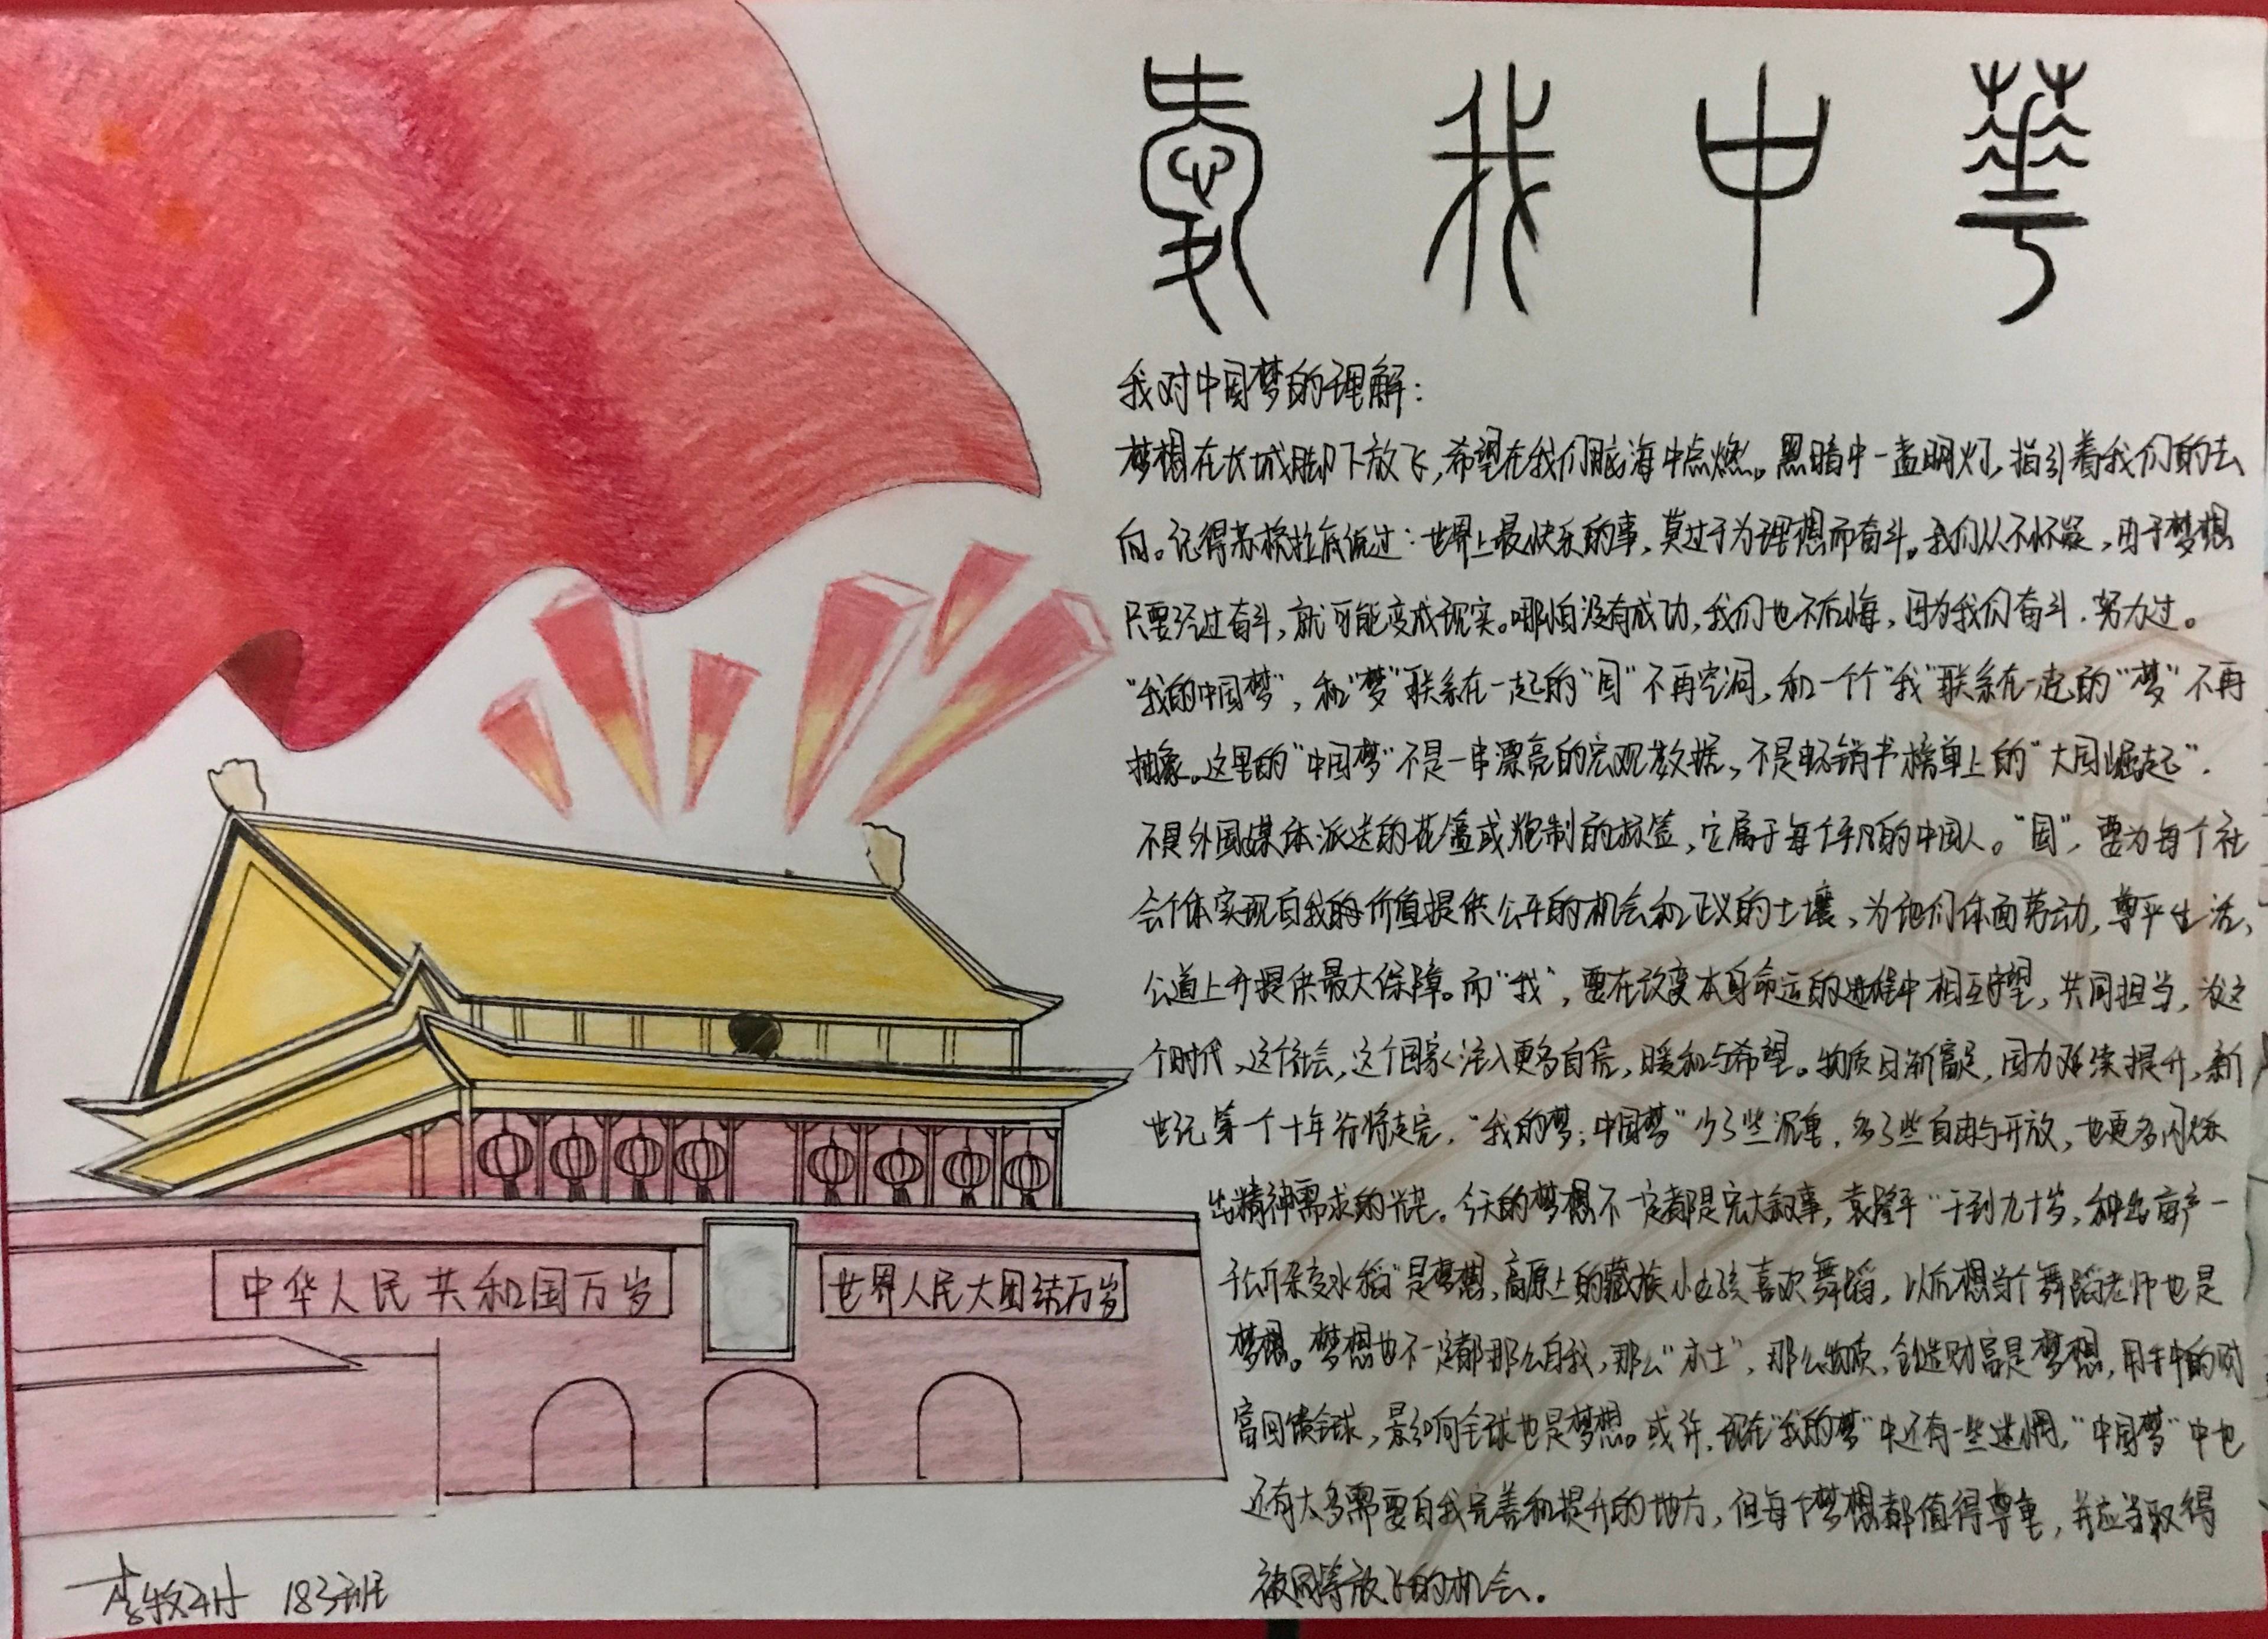 愛我中華
我对中国梦的理解：
梦想在长城脚下放飞，希望在我们脑海中点燃。黑暗中一盏明灯，指引着我们的去
向。记得苏格拉底说过：世界上最快乐的事，莫过于为理想而奋斗。我们从不怀疑，由于梦想
只要经过奋斗，就可能变成现实。哪怕没有成功，我们也不后悔，因为我们奋斗.努力过。
“我的中国梦”，和“梦”联系在一起的“国”不再空洞，和一个“我”联系在一起的“梦”不再
抽象。这里的“中国梦”不是一串漂亮的宏观数据、不是畅销书榜单上的“大国崛起”.
不是外国媒体派送的花篮或炮制的标签，它属于每个平凡的中国人。“国”，要为每个社
会个体实现自我的价值提供公平的机会和正义的土壤，为他们体面劳动，尊严生活，
公道上升提供最大保障。而“我”，要在改变本身命运的进程中相互守望，共同担当，为这
个时代、这个社会，这个国家注入更多自信，暖和与希望。物质日渐富足，国力延续提升，新
世纪第一个十年行将走完，“我的梦；中国梦”少了些沉重，多了些自由与开放，也更多闪烁
出精神需求的光芒。今天的梦想不一定都是宏大叙事，袁隆平“干到九十岁，种出亩产一
千公斤杂交水稻”是梦想，高原上的藏族小女孩喜欢舞蹈，以后想当个舞蹈老师也是
梦想。梦想也不一定都那么自我，那么“本土”，那么物质，创造财富是梦想，用手中的财
富回馈全球，影响全球也是梦想。或许，现在“我的梦”中还有一些迷惘，“中国梦”中也
还有太多需要自我完善和提升的地方，但每个梦想都值得尊重，并应当取得
被同等放飞的机会。
中华人民共和国万岁
世界人民大团结万岁
李牧 183班